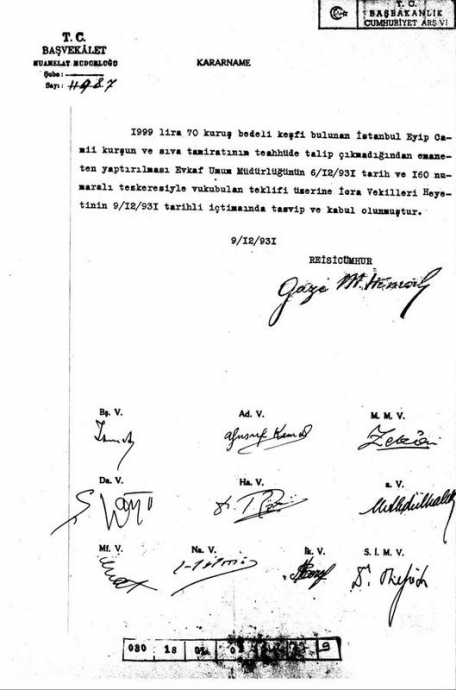 T. C.
BAŞBAKANLIK
CUMHURİYET ARŞİVİ
T. C.
BAŞVEKÂLET
MUAMELAT MÜDÜRLÜĞÜ
Şube:
Sayı:
KARARNAME
I999 lira 70 kuruş bedeli keşfi bulunan İstanbul Eyip Ca-
mii kurşun ve sıva tamiratının teahhüde talip çıkmadığından emane-
ten yaptırılması Evkaf Umum Müdürlüğünün 6/I2/93I tarih ve I60 nu-
maralı teskeresiyle vukubulan teklifi üzerine İcra Vekilleri Heye-
tinin 9/I2/93I tarihli içtimaında tasvip ve kabul olunmuştur.
9/I2/93I
REİSİCÜMHUR
Gazi M. Kemal
Bş. V.
Ad. V.
M. M. V.
Yusuf Kemal
Da. V.
Ha. V.
V.
Mf. V.
Na. V.
İk. V.
S. İ. M. V.
030 18